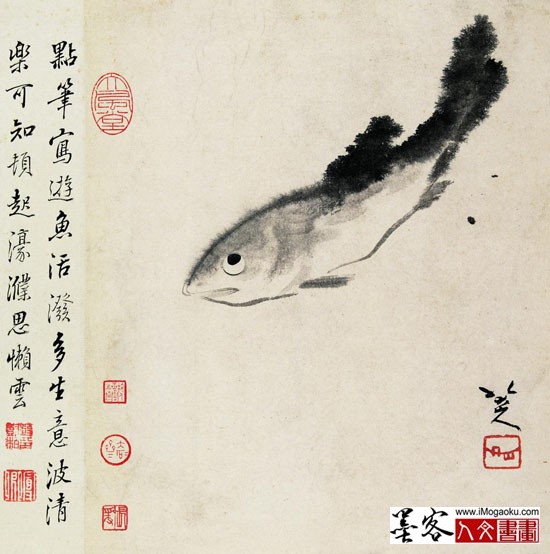 點筆寫遊魚活潑多生意波清
樂可知頓起濠濮思懶雲
八大
www.iMogaoku.com
墨客人文書畫